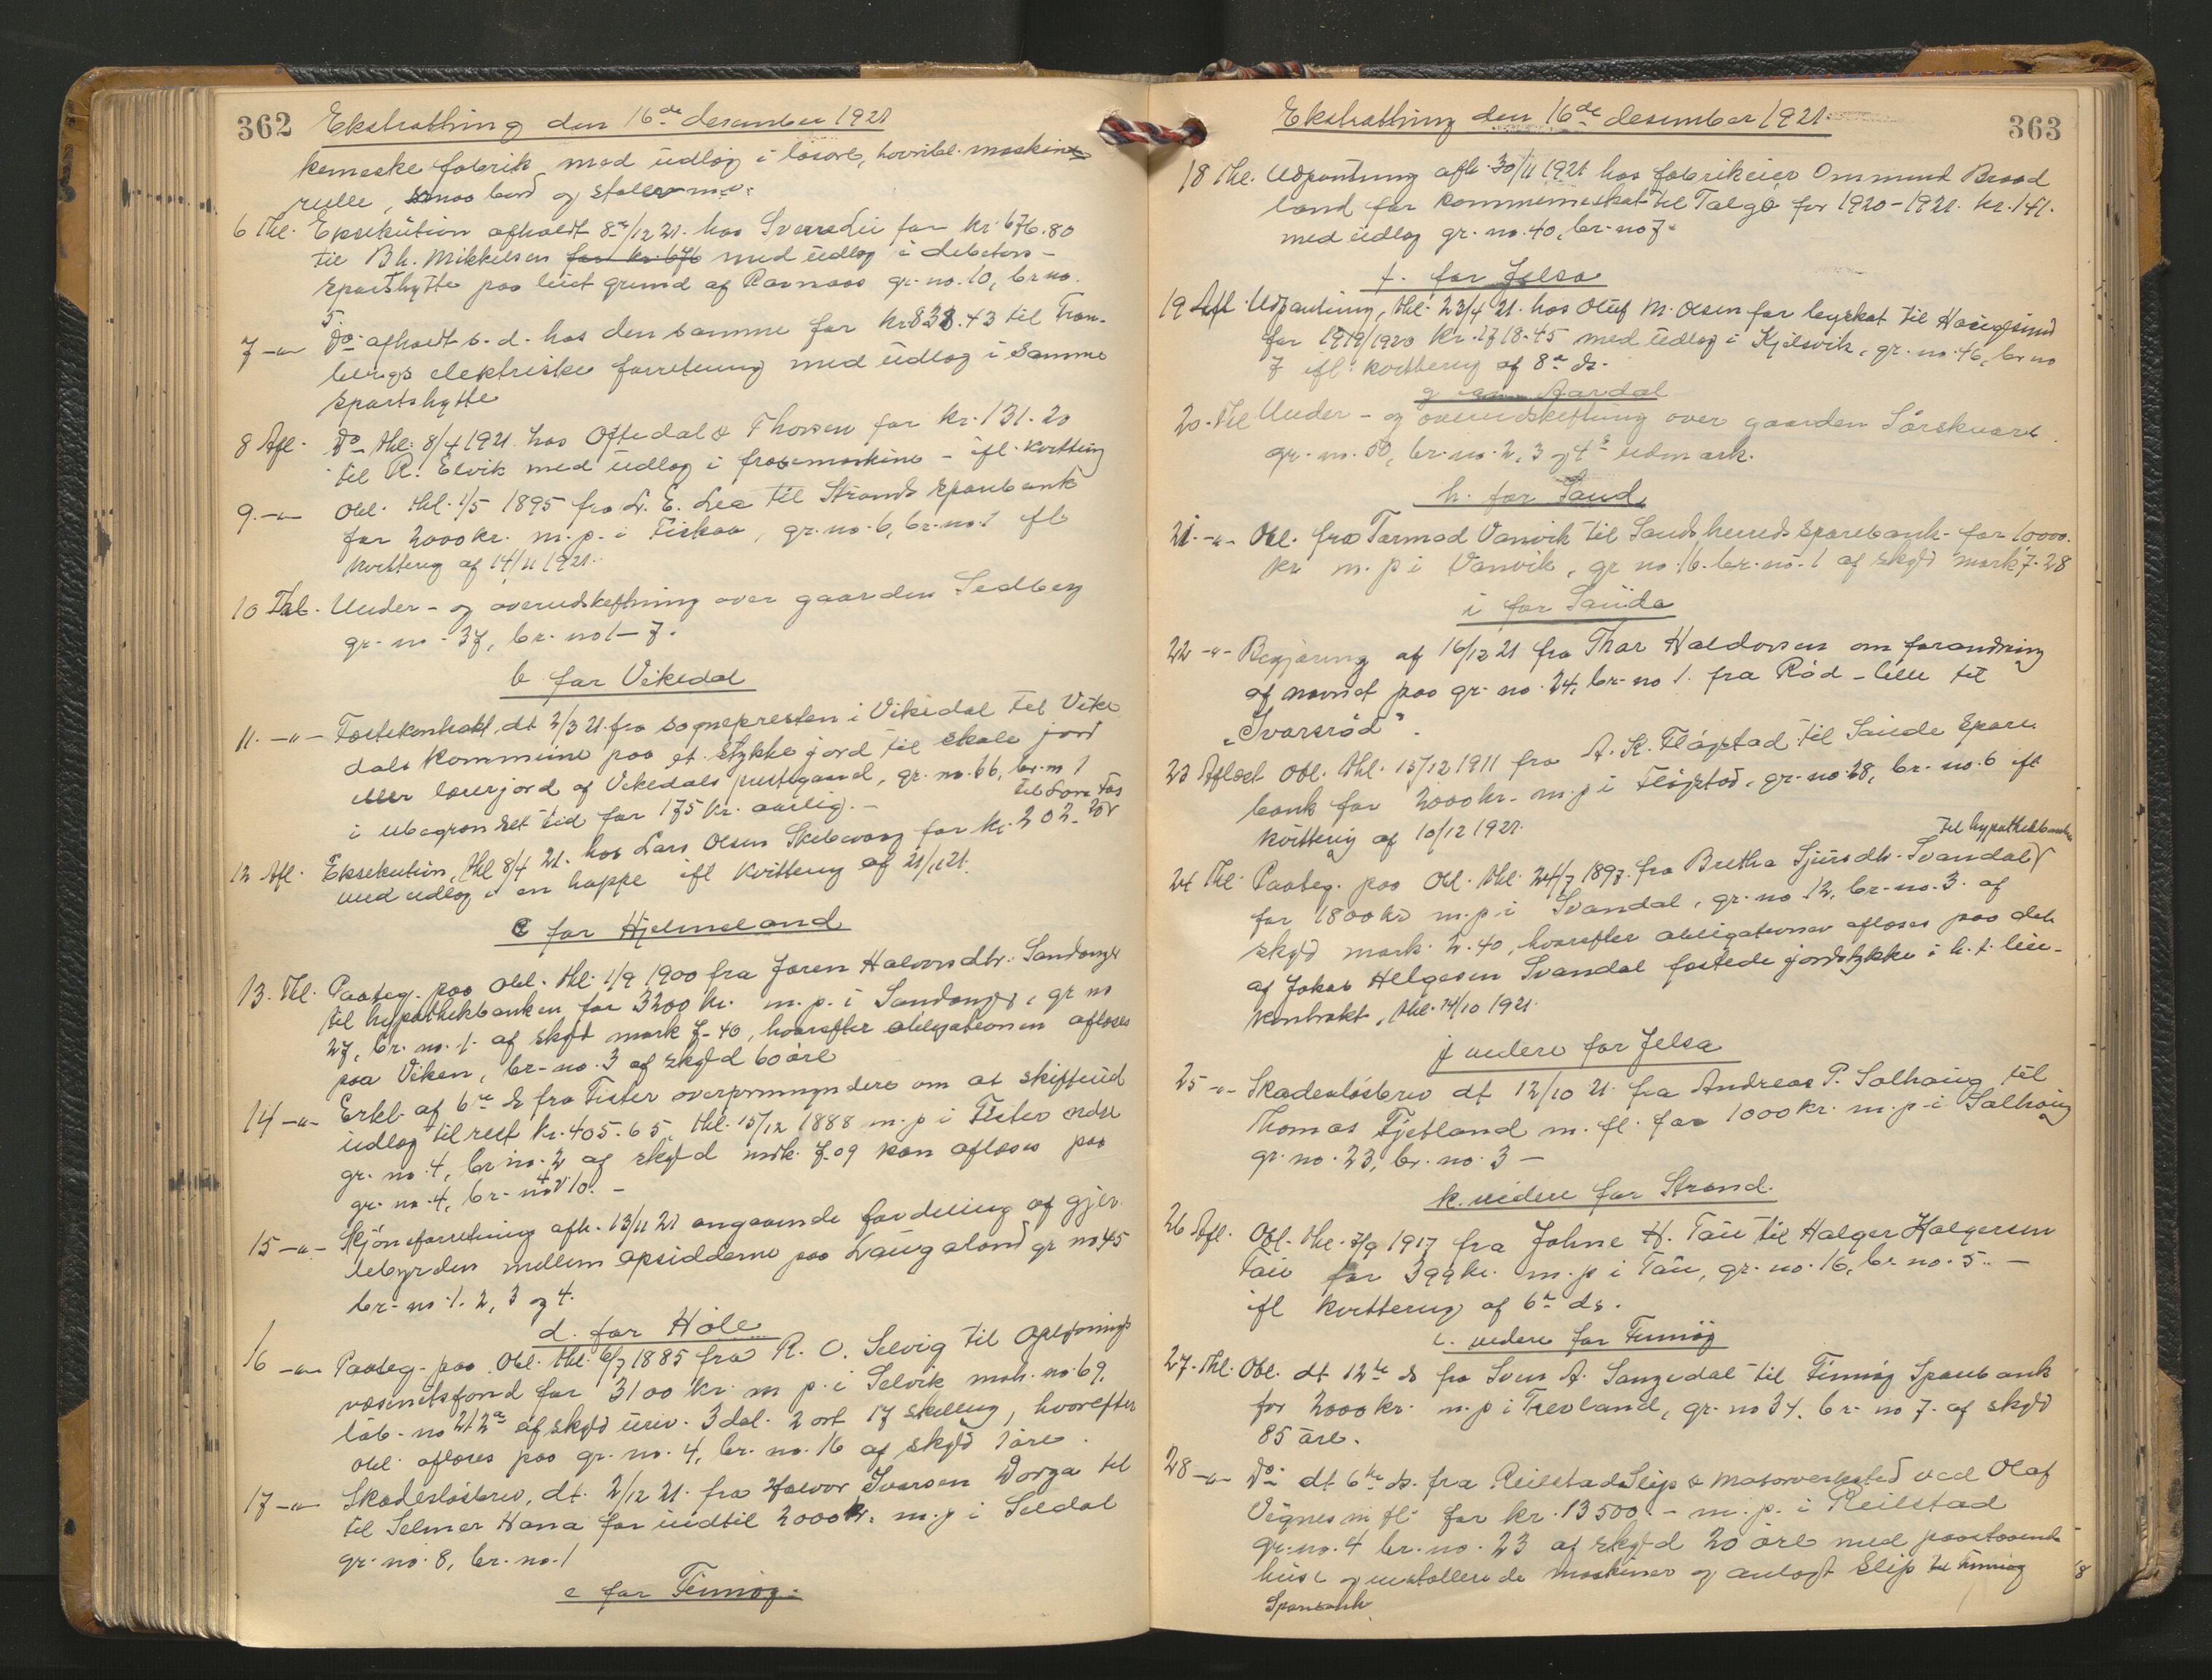 362 Ekstrathing den 16de desember 1921
kemiske fabrik med udlæg i løsøre, hovedsl. maskin-
rulle, smaa bord og stoler m. v.
6 Thl. Eksekution afholdt 8de/12 21. hos Sverre Lie for kr. 676.80
til Bh. Mikkelsen for kr. 676 med udlæg i debetors
sportshytte paa leiet grund af Ravnaas gr. no. 10, br. no.
5.
7 -"- Do. afholdt s. d. hos den samme for kr. 838.43 til Tran-
bergs elektriske forretning med udlæg i samme
sportshytte
8 Afl. Do. thl. 8/4 1921 hos Oftedal & Thorsen for kr. 131.20
til R. Elvik med udlæg i fræsemaskine - ifl. kvittering
9. -"- Obl. thl. 1/5 1895 fra L. E. Lea til Strands Sparebank
for 2000 kr. m. p. i Fiskaa, gr. no. 6, br. no. 1 ifl
kvittering af 14/11 1921.
10 Thl. Under- og overudskiftning over gaarden Sedberg
gr. no. 37, br. no 1-7.
b for Vikedal
11. -"- Fæstekontrakt, dt 2/3 21. fra sognepresten i Vikedal til Vike
dals kommune paa et stykke jord til skole jord
eller lærerjord af Vikedals prestegaard, gr. no. 66, br. no 1
i ubegrænset tid for 175 kr. aarlig. -
til Lars Fos
12 Afl. Eksekution, thl 8/4 21. hos Lars Olsen Skibevaag for kr. 202.20
med udlæg i en hoppe ifl kvittering af 21/11 21.
c for Hjelmeland
13. Thl. Paateg. paa Obl. thl. 1/9 1900 fra Joren Halvorsdtr. Sandanger
til hypothekbanken for 3200 kr. m. p. i Sandanger, gr no
27, br. no. 1. af skyld mark 7.40, hvorefter obligationen afløses
paa Viken, br. no. 3 af skyld 60 øre
14 -"- Erkl. af 6te ds fra Fister overformyndere om at skifteud
udlæg til rest kr. 405.65 thl. 15/12 1888 m. p i Fister ndre
gr. no. 4, br no. 2 af skyld mrk. 7.09 kan afløses paa
gr. no. 4, br. no 10. -
15 -"- Skjønsforretning afh. 13/11 21 angaaende fordeling af gjer-
debyrden mellem opsidderne paa Laugaland gr no 45
br. no. 1. 2, 3 og 4.
d. for Høle
16 -"- Paateg. paa Obl. thl. 6/7 1885 fra R. O. Selvig til Oplysnings
væsenetsfond for 3100 kr. m p. i Selvik matr. no. 69,
løb. no 212a af skyld uriv. 3 dal. 2 ort 17 skilling, hvorefter
obl. afløses paa gr. no. 4, br. no. 16 af skyld 1 øre.
17 -"- Skadesløsbrev, dt. 2/12 21. fra Halvor Ivarsen Dorga til
til Selmer Hana for indtil 2000 kr. m. p i Seldal
gr. no. 8, br. no. 1
e for Finnøy.
Ekstrathing den 16de desember 1921. 363
18 Thl. Udpantning afh. 30/11 1921 hos fabrikeier Ommund Braad
land for kommuneskat til Talgø for 1920-1921. kr. 141.
med udlæg gr. no. 40, br. no 7.
f. for Jelsa
19 Afl. Udpantning, thl. 23/4 21. hos Oluf M. Olsen for byskat til Haugesund
for 1919/1920 kr. 1718.45 med udlæg i Kjilsvik, gr. no. 46, br no
7 ifl. kvittering af 8de ds.
g Aardal
20. Thl Under- og overudskiftning over gaarden Sørskaare
gr. no. 50, br. no. 2, 3 og 4s udmark.
h. for Sand
21. -"- Obl. fra Tarmod Vanvik til Sands herreds sparebank for 10000.
kr m. p i Vanvik, gr no. 16. br. no. 1 af skyld mark 7.28
i for Sauda
22 -"- Begjæring af 16/12 21 fra Thor Haldorsen om forandring
af navnet paa gr. no. 24, br. no 1. fra Rød - lille til
"Ivarsrød".
23 Aflæst Obl. thl. 15/12 1911 fra A. K. Fløgstad til Saude Spare
bank for 2000 kr. m. p i Fløgstad, gr. no. 28, br. no. 6 ifl
kvittering af 10/12 1921.
til hypothekbanken
24 Thl. Paateg. paa Obl. thl. 24/7 1897. fra Bretha Sjursdtr. Svandal
for 1800 kr m. p i Svandal, gr. no 12, br. no. 3. af
skyld mark. 2.40, hvorefter obligationen afløses paa det
af Jakob Helgesen Svandal fæstede jordstykke i h. t. leie-
kontrakt, thl. 14/10 1921.
j videre for Jelsa
25 -"- Skadesløsbrev dt 12/10 21. fra Andreas P. Solhaug til
Thomas Fjetland m. fl. for 1000 kr. m. p i Solhaug
gr. no. 23, br. no. 3 -
k. videre for Strand.
26 Afl. Obl. thl. 3/9 1917 fra Johne H. Tau til Halger Halgersen
Tau for 399 kr. m. p i Tau, gr. no. 16, br. no. 5. -
ifl kvittering af 6te ds.
l. videre for Finnøy
27. Thl. Obl. dt 12te ds fra Sven A. Sangedal til Finnøy Sparebank
for 2000 kr. m. p i Trevland, gr. no 34. br. no 7. af skyld
85 øre.
28 -"- Do. dt 6te ds. fra Reilstad Slip & Motorverksted ved Olaf
Vignes m fl. for kr. 13500.- m. p. i Reilstad
gr. no. 4 br. no. 23 af skyld 20 øre med paastaaende
huse og installerede maskiner og anlagt Slip til Finnøy
Sparebank